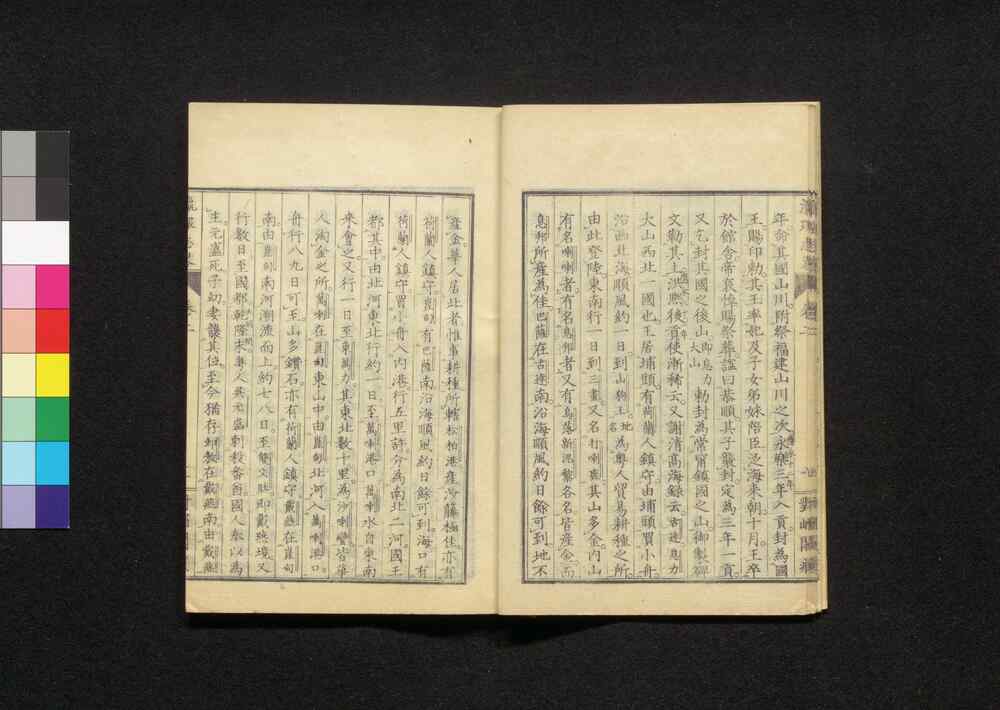 年命其國山川附祭福建山川之次永樂三年入貢封為國
王賜印勅其王率妃及子女弟妹陪臣泛海来朝十月王卒
於館舍帝哀悼賜祭葬謚曰恭順其子襲封定為三年一貢
又乞封其國之後山即息力大山勅封為常甯鎮國之山御製碑
文勒其上洪熙後貢使漸稀云又謝清高海録云古達息力
大山西北一國也王居埔頭有荷蘭人鎮守由埔頭買小舟
沿西北海順風約一日到山狗王地名為粤人貿易耕種之所
由此登陸東南行一日到三畫又名打喇鹿其山多金內山
有名喇喇者有名息邦者又有烏落新泥黎各名皆產金而
息邦所產為佳巴薩在古達南沿海順風約日餘可到地不
產金華人居此者惟事耕種所轄松柏港產沙藤極佳亦有
荷蘭人鎮守崑甸有巴薩南沿海順風約日餘可到海口有
荷蘭人鎮守買小舟入內港行五里許分為南北二河國王
都其中由北河東北行約一日至萬喇港口萬喇水自東南
来會之又行一日至東萬力其東北數十里為沙喇蠻皆華
人淘金之所萬喇在崑甸東山中由崑甸北河入萬喇港口
舟行八九日可至山多鑽石亦有荷蘭人鎮守戴燕在崑甸
南由崑甸南河溯流而上約七八日至雙文肚即戴燕境又
行數日至國都乾隆末粤人吳元盛刺殺番酋國人奉以為
主元盛死子幼妻襲其位至今猶存卸敖在戴燕南由戴燕